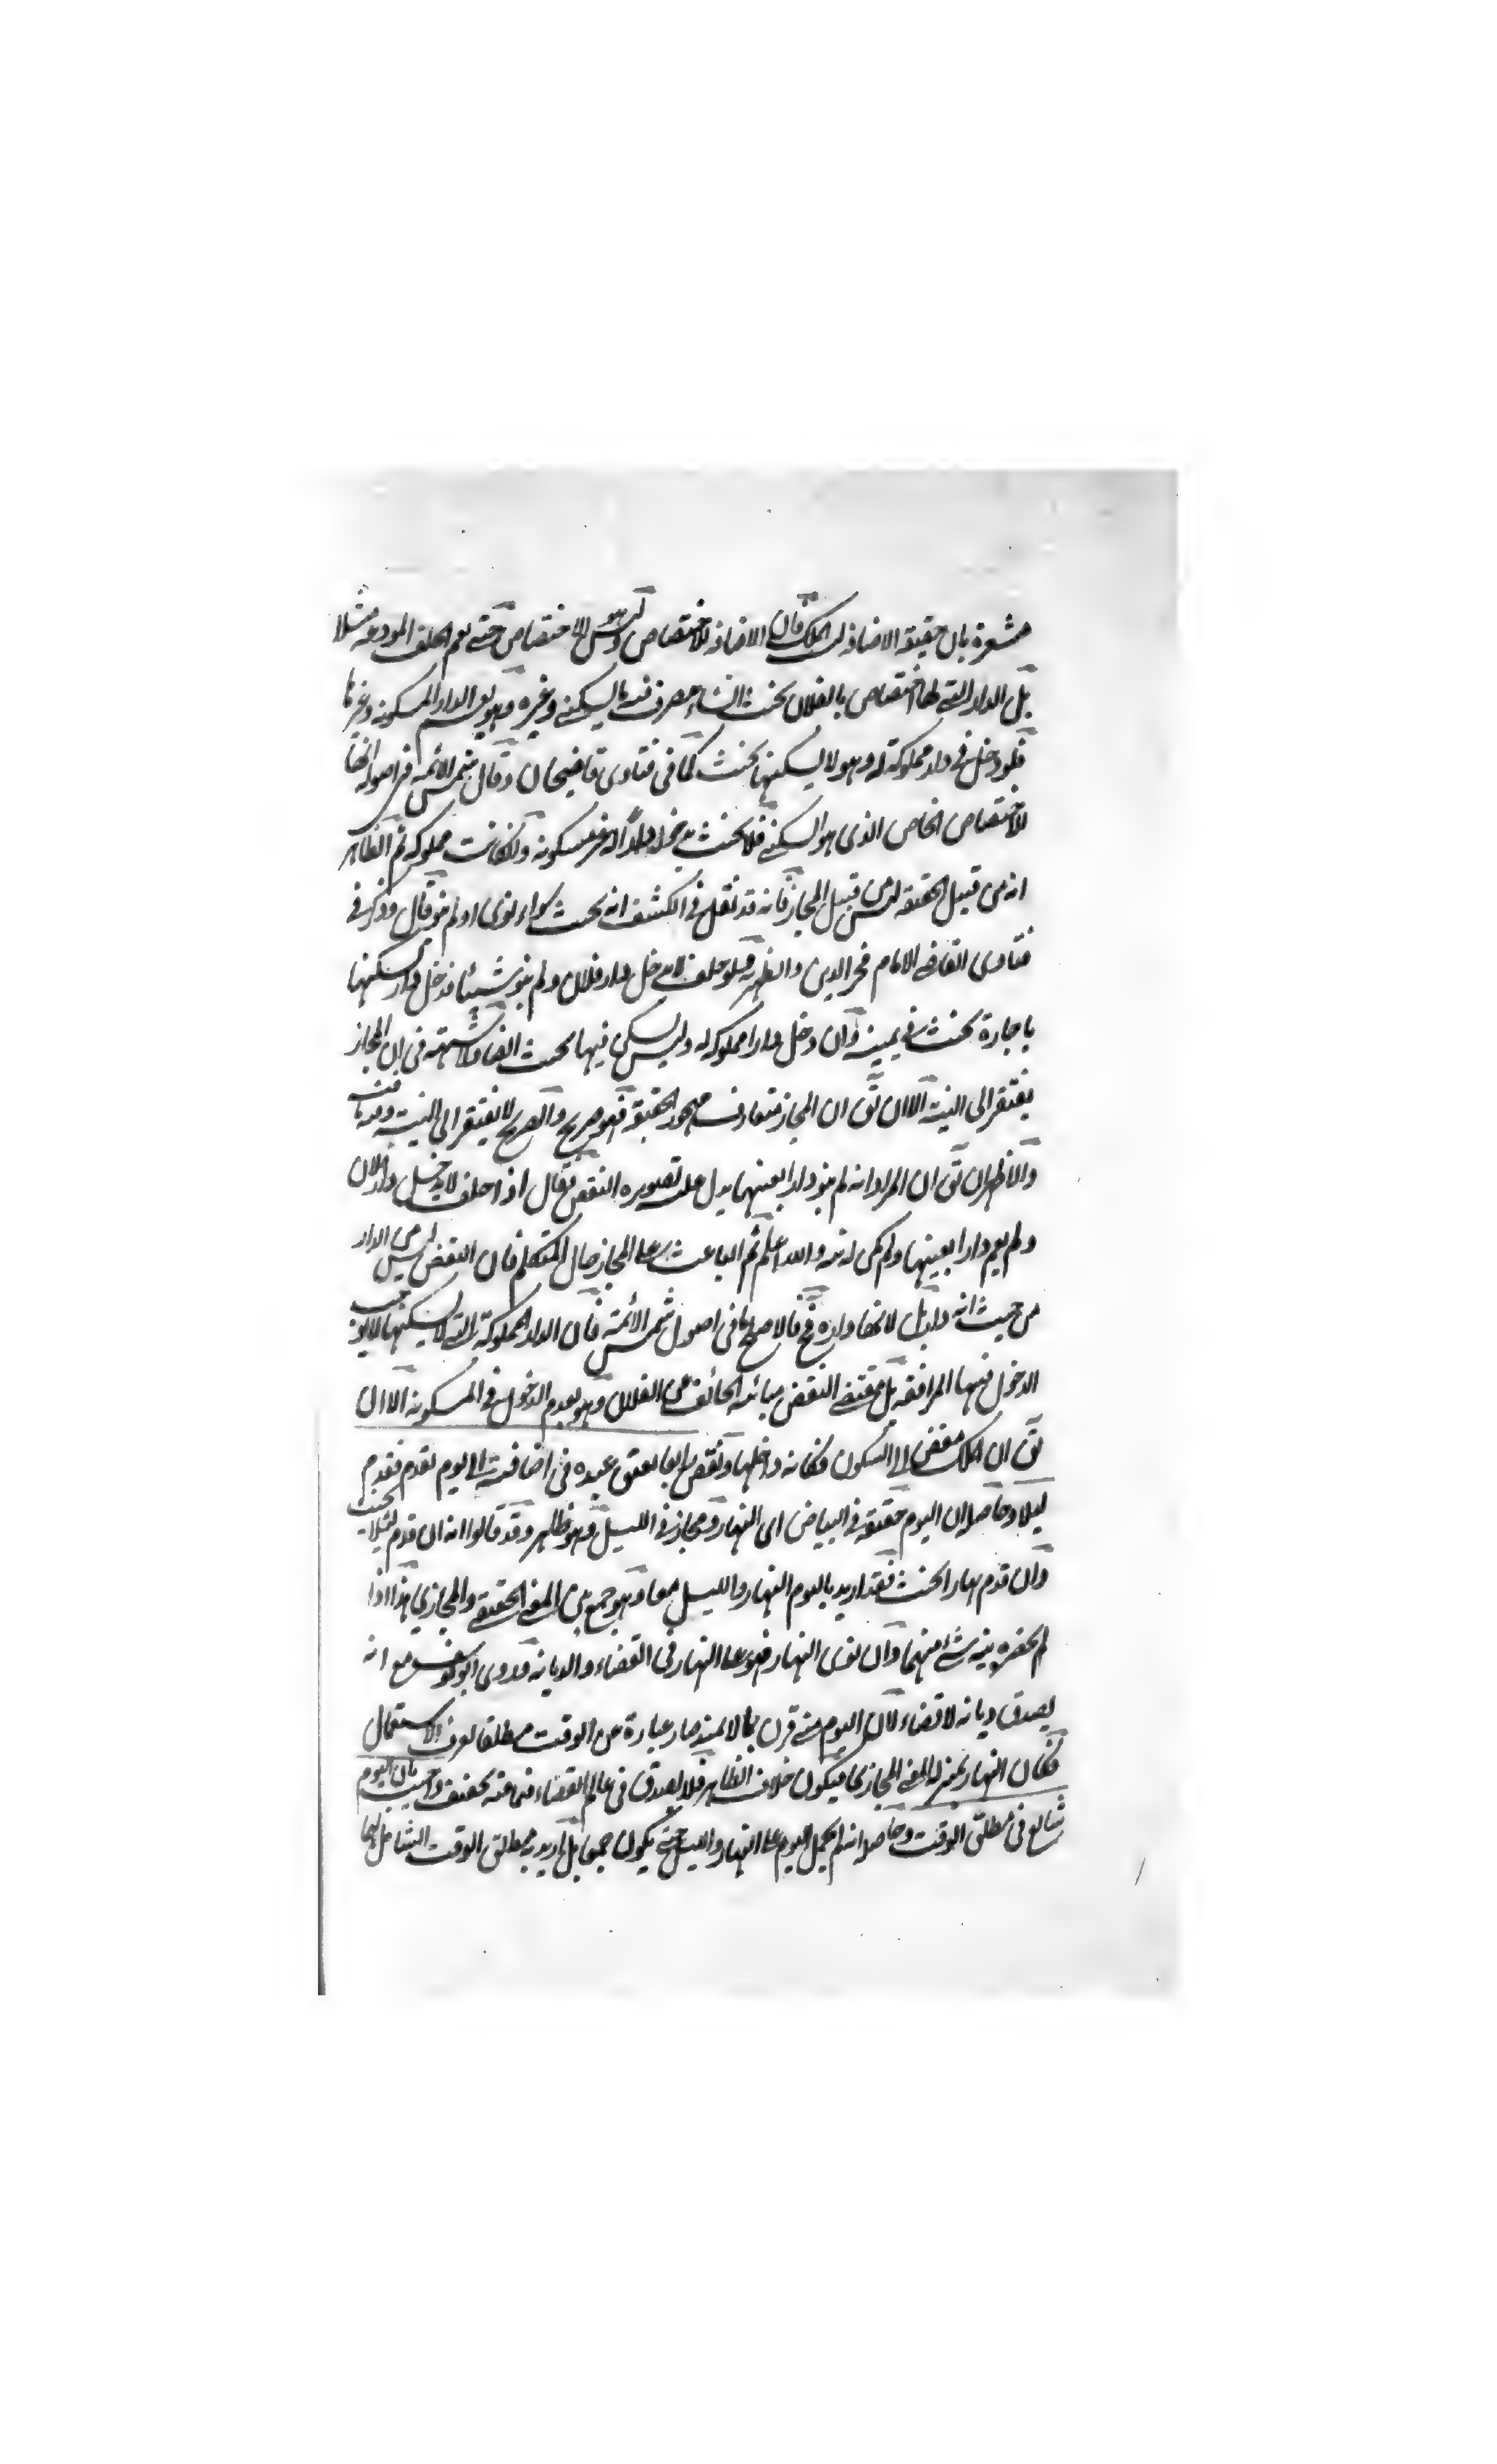 مشعرة بان حقيقة الاضافة الملك فان الاضافة للاختصاص وليس هو الاختصاص حتى يعم الحلف المودعة مثلا
بل الدار التي لها اختصاص بالفلان بحث انشاء مصرف بالسكنى وغيره وهو يعم الدار المسكونة وغيرها
فلو دخل في دار مملوكة له وهو لا يسكنها يحنث كما في فتاوى قاضيخان وقال شمس الائمة في اصوله انها
للاختصاص الخاص الذي هو السكنى فلا يحنث بدخول دار له غير مسكونة وان كانت مملوكة ثم الظاهر
انه من قبيل الحقيقة ليس من قبيل المجاز فانه قد نقل في الكشف انه يحنث سواء نوى او لم ينو قال وذكر في
فتاوى القاضي الامام فخر الدين والظهيرية لو حلف لا يدخل دار فلان ولم ينو شيئا فدخل دار يسكنها
باجارة يحنث في يمينه وان دخل دارا مملوكة له وليس يسكن فيها يحنث ايضا ولا شبهة في ان المجاز
يفتقر الى النية الا ان يق ان المجاز متعارف مهجور الحقيقة فهو صريح والصريح لا يفتقر الى النية وفيه ما فيه
والاظهر ان يق ان المراد انه لم ينو دارا بعينها يدل عليه تصويره النقض يقال اذا حلف لا يدخل دار فلان
ولم يعم دارا بعينها ولم يكن له نية والله اعلم ثم الباعث على المجاز حال المتكلم فان البغض ليس من الدار
من حيث انه دار بل لانها داره فح فالاصح ما في اصول شمس الائمة فان الدار المملوكة التي لا يسكنها لا يوجب
الدخول فيها المرافقة بل مقتضى البغض مباينة الحالف من الفلان وهو بعدم الدخول في المسكونة الا ان
يق ان الملك مفض الى السكون فكانه داخلها ونقض ايضا بعتق عبده في اضافته الى يوم يقدم فقدم
ليلا وحاصله ان اليوم حقيقة في البياض اي النهار ومجاز في الليل وهو ظاهر وقد قالوا انه ان قدم ليلا يحنث
وان قدم نهارا يحنث فقد اريد باليوم النهار والليل معا وهو جمع بين المعنى الحقيقي والمجازي هذا اذا
لم يحضره نية شيء منهما وان نوى النهار فهو على النهار في القضاء والديانة وروى ابو يوسف مع انه
يصدق ديانة لا قضاء لان اليوم متى قرن بما لا يمتد صار عبارة عن الوقت مطلقا لعرف الاستعمال
فكان النهار بمنزلة المعنى المجازي فيكون خلاف الظاهر فلا يصدق في عالم القضاء فيما فيه تخفيف واجيب بان اليوم
شايع في مطلق الوقت وحاصله انه لم يحمل اليوم على النهار والليل حتى يكون جمعا بل اريد به مطلق الوقت الشامل لهما